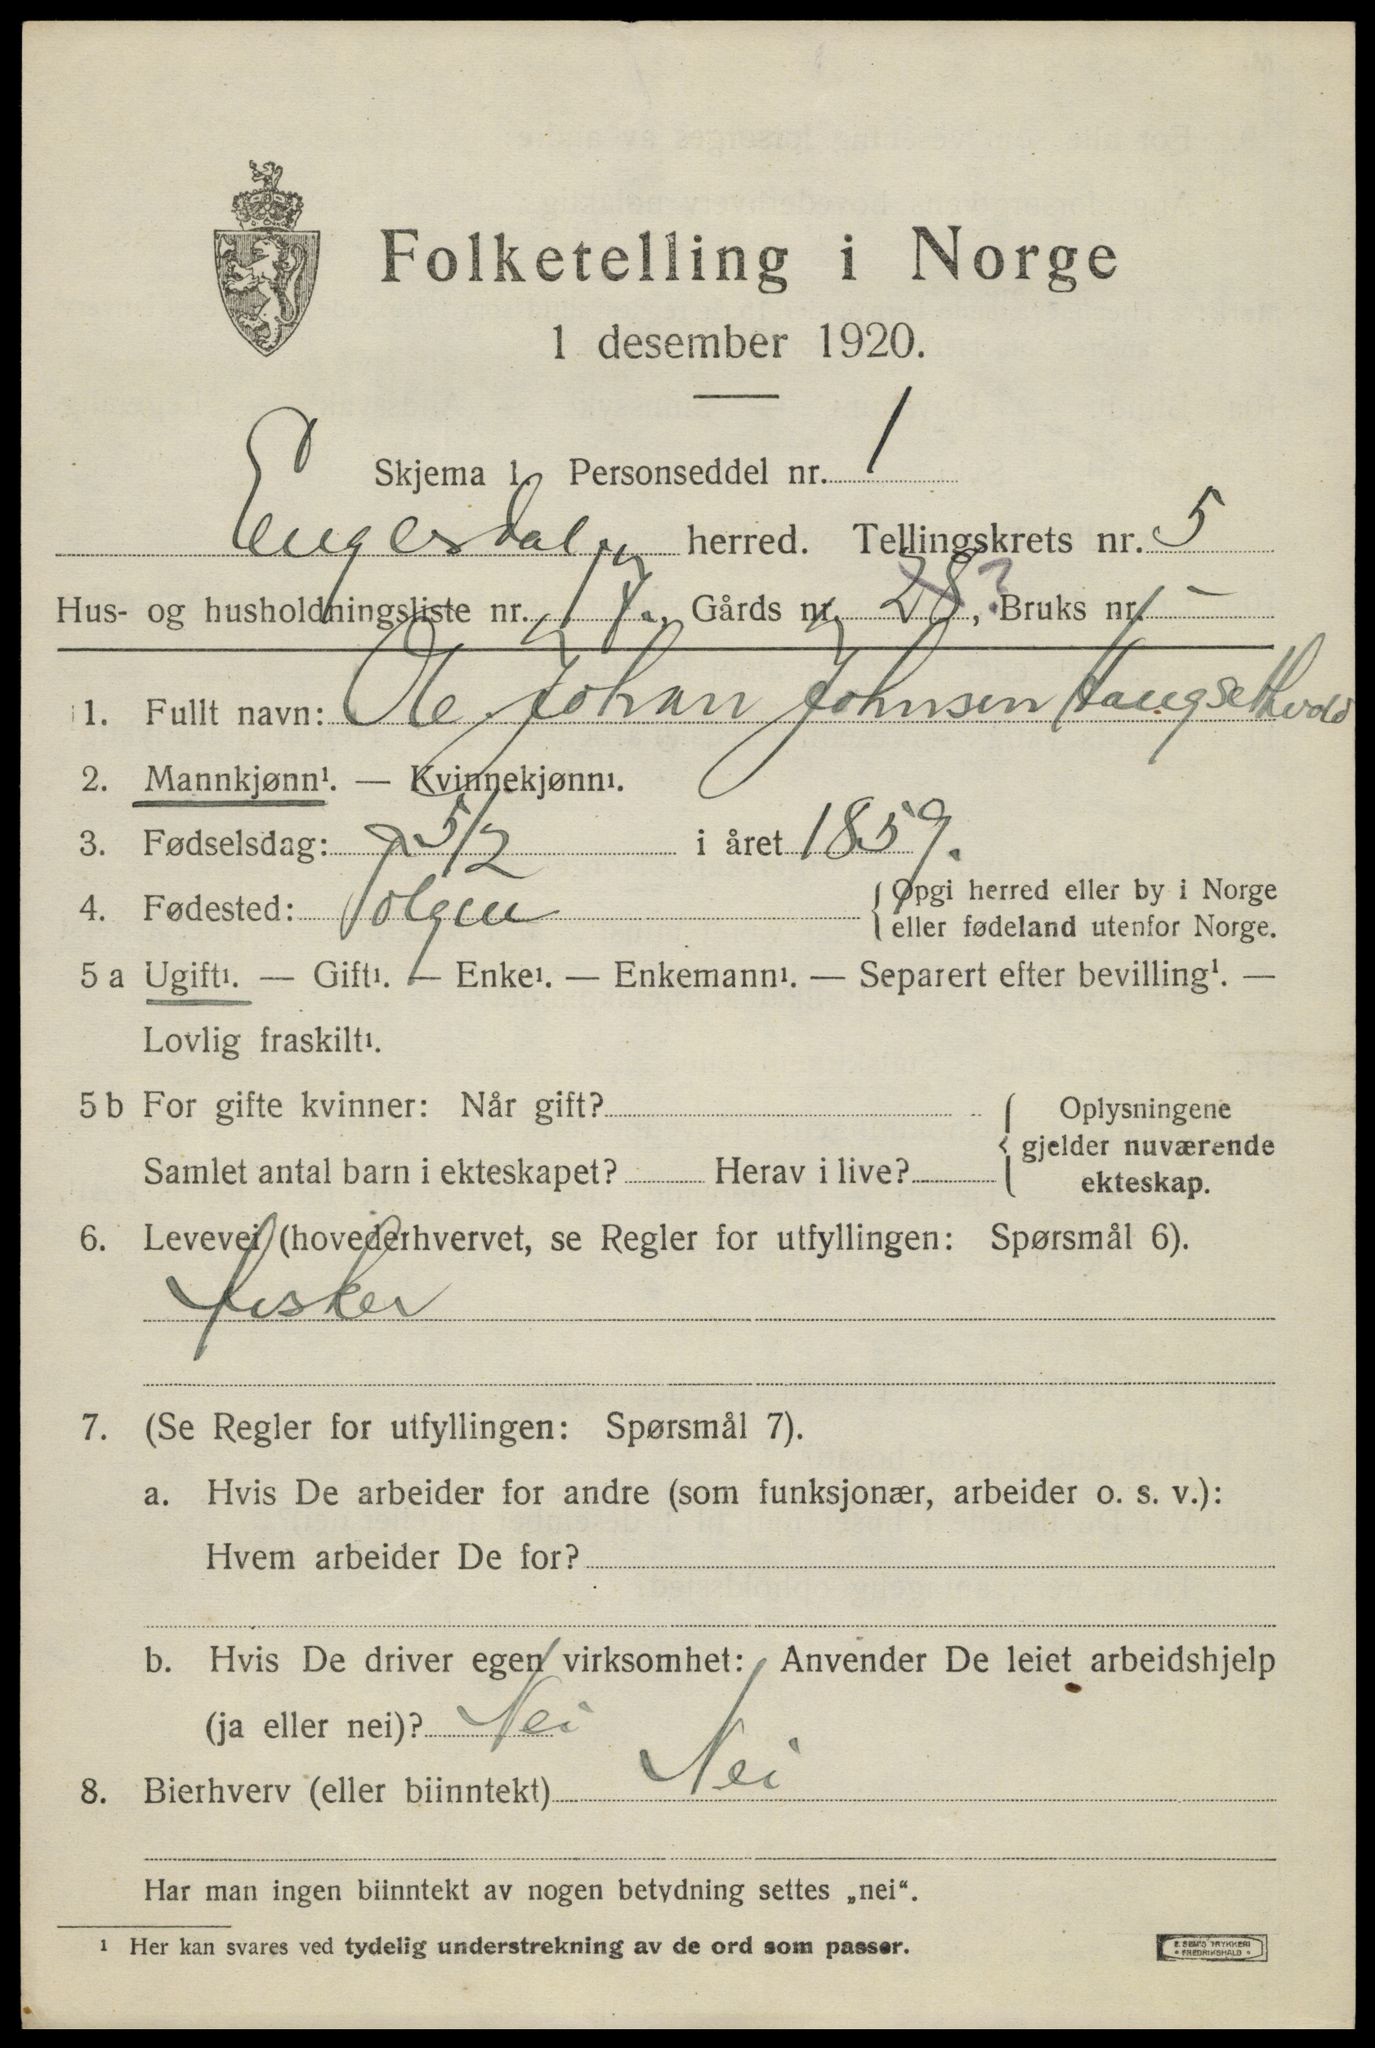 Folketelling i Norge
1 desember 1920.
Skjema 1. Personseddel nr. 1
Engerdal herred. Tellingskrets nr. 5
Hus- og husholdningsliste nr. 17, Gårds nr. 28?, Bruks nr. –
1. Fullt navn: Ole Johan Johnsen Haugsethvold
2. Mannkjønn¹. — Kvinnekjønn¹.
3. Fødselsdag: 5/2 i året 1859.
4. Fødested: Tolgen {Opgi herred eller by i Norge
eller fødeland utenfor Norge.
5 a Ugift¹. — Gift¹. — Enke¹. — Enkemann¹. — Separert efter bevilling¹. —
Lovlig fraskilt¹.
5 b For gifte kvinner: Når gift?
Samlet antal barn i ekteskapet? Herav i live?
{Oplysningene
gjelder nuværende
ekteskap.
6. Levevei (hovederhvervet, se Regler for utfyllingen: Spørsmål 6).
Fisker
7. (Se Regler for utfyllingen: Spørsmål 7).
a. Hvis De arbeider for andre (som funksjonær, arbeider o. s. v.):
Hvem arbeider De for?
b. Hvis De driver egen virksomhet: Anvender De leiet arbeidshjelp
(ja eller nei)? Nei
8. Bierhverv (eller biinntekt) Nei
Har man ingen biinntekt av nogen betydning settes „nei“.
¹ Her kan svares ved tydelig understrekning av de ord som passer.
E. SEM'S TRYKKERI
• FREDRIKSHALD •